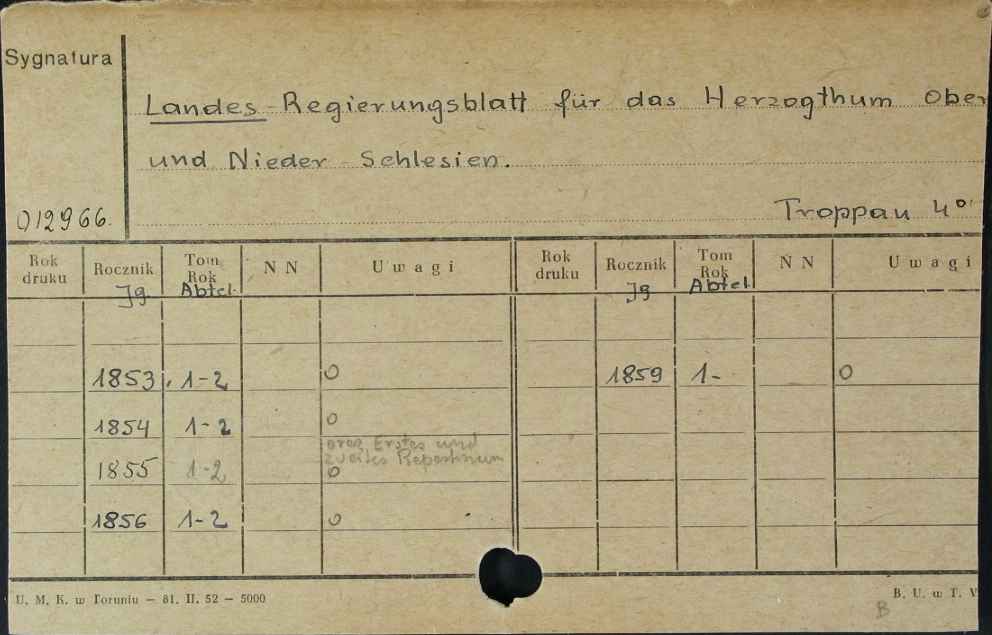 Sygnatura
Landes-Regierungsblatt für das Herzogthum Ober
und Nieder Schlesien.
012966.
Troppau 4°
Rok druku Rocznik Tom Rok N N Uwagi Rok druku Rocznik Tom Rok N N Uwagi
Jg Abtel. Jg Abtel.
1853, 1-2 0 1859 1- 0
1854 1-2 0
oraz Erstes und
zweites Repertorium
1855 1-2 0
1856 1-2 0
U. M. K. w Toruniu — 81. II. 52 — 5000
B. U. w T. V
B